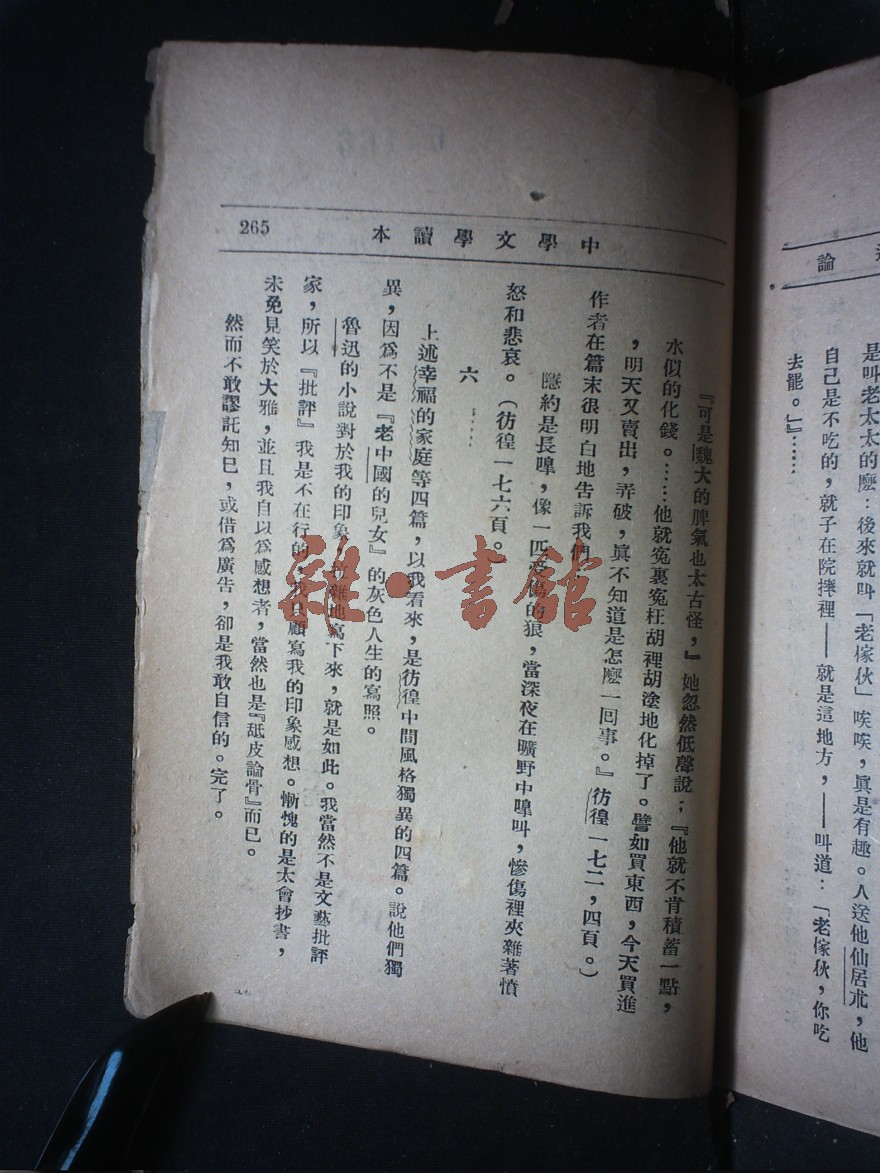 論
是叫老太太的麽：後來就叫「老傢伙」唉唉，眞是有趣。人送他仙居朮，他
自己是不吃的，就子在院摔裡——就是這地方，——叫道：「老傢伙，你吃
去罷。」』……
中學文學讀本
265
『可是魏大的脾氣也太古怪，』她忽然低聲說；『他就不肯積蓄一點，
水似的化錢。……他就寃裏寃枉胡裡胡塗地化掉了。譬如買東西，今天買進
，明天又賣出，弄破，眞不知道是怎麽一囘事。』（彷徨一七二，四頁。）
作者在篇末很明白地告訴我們
隱約是長嘷，像一匹受傷的狼，當深夜在曠野中嘷叫，慘傷裡夾雜著憤
怒和悲哀。（彷徨一七六頁。）
六 ……
上述幸福的家庭等四篇，以我看來，是彷徨中間風格獨異的四篇。說他們獨
異，因爲不是『老中國的兒女』的灰色人生的寫照。
魯迅的小說對於我的印象，拉雜地寫下來，就是如此。我當然不是文藝批評
家，所以『批評』我是不在行的，我只顧寫我的印象感想。慚愧的是太會抄書，
未免見笑於大雅，並且我自以爲感想者，當然也是『舐皮論骨』而已。
然而不敢謬託知己，或借爲廣告，卻是我敢自信的。完了。
雜·書館